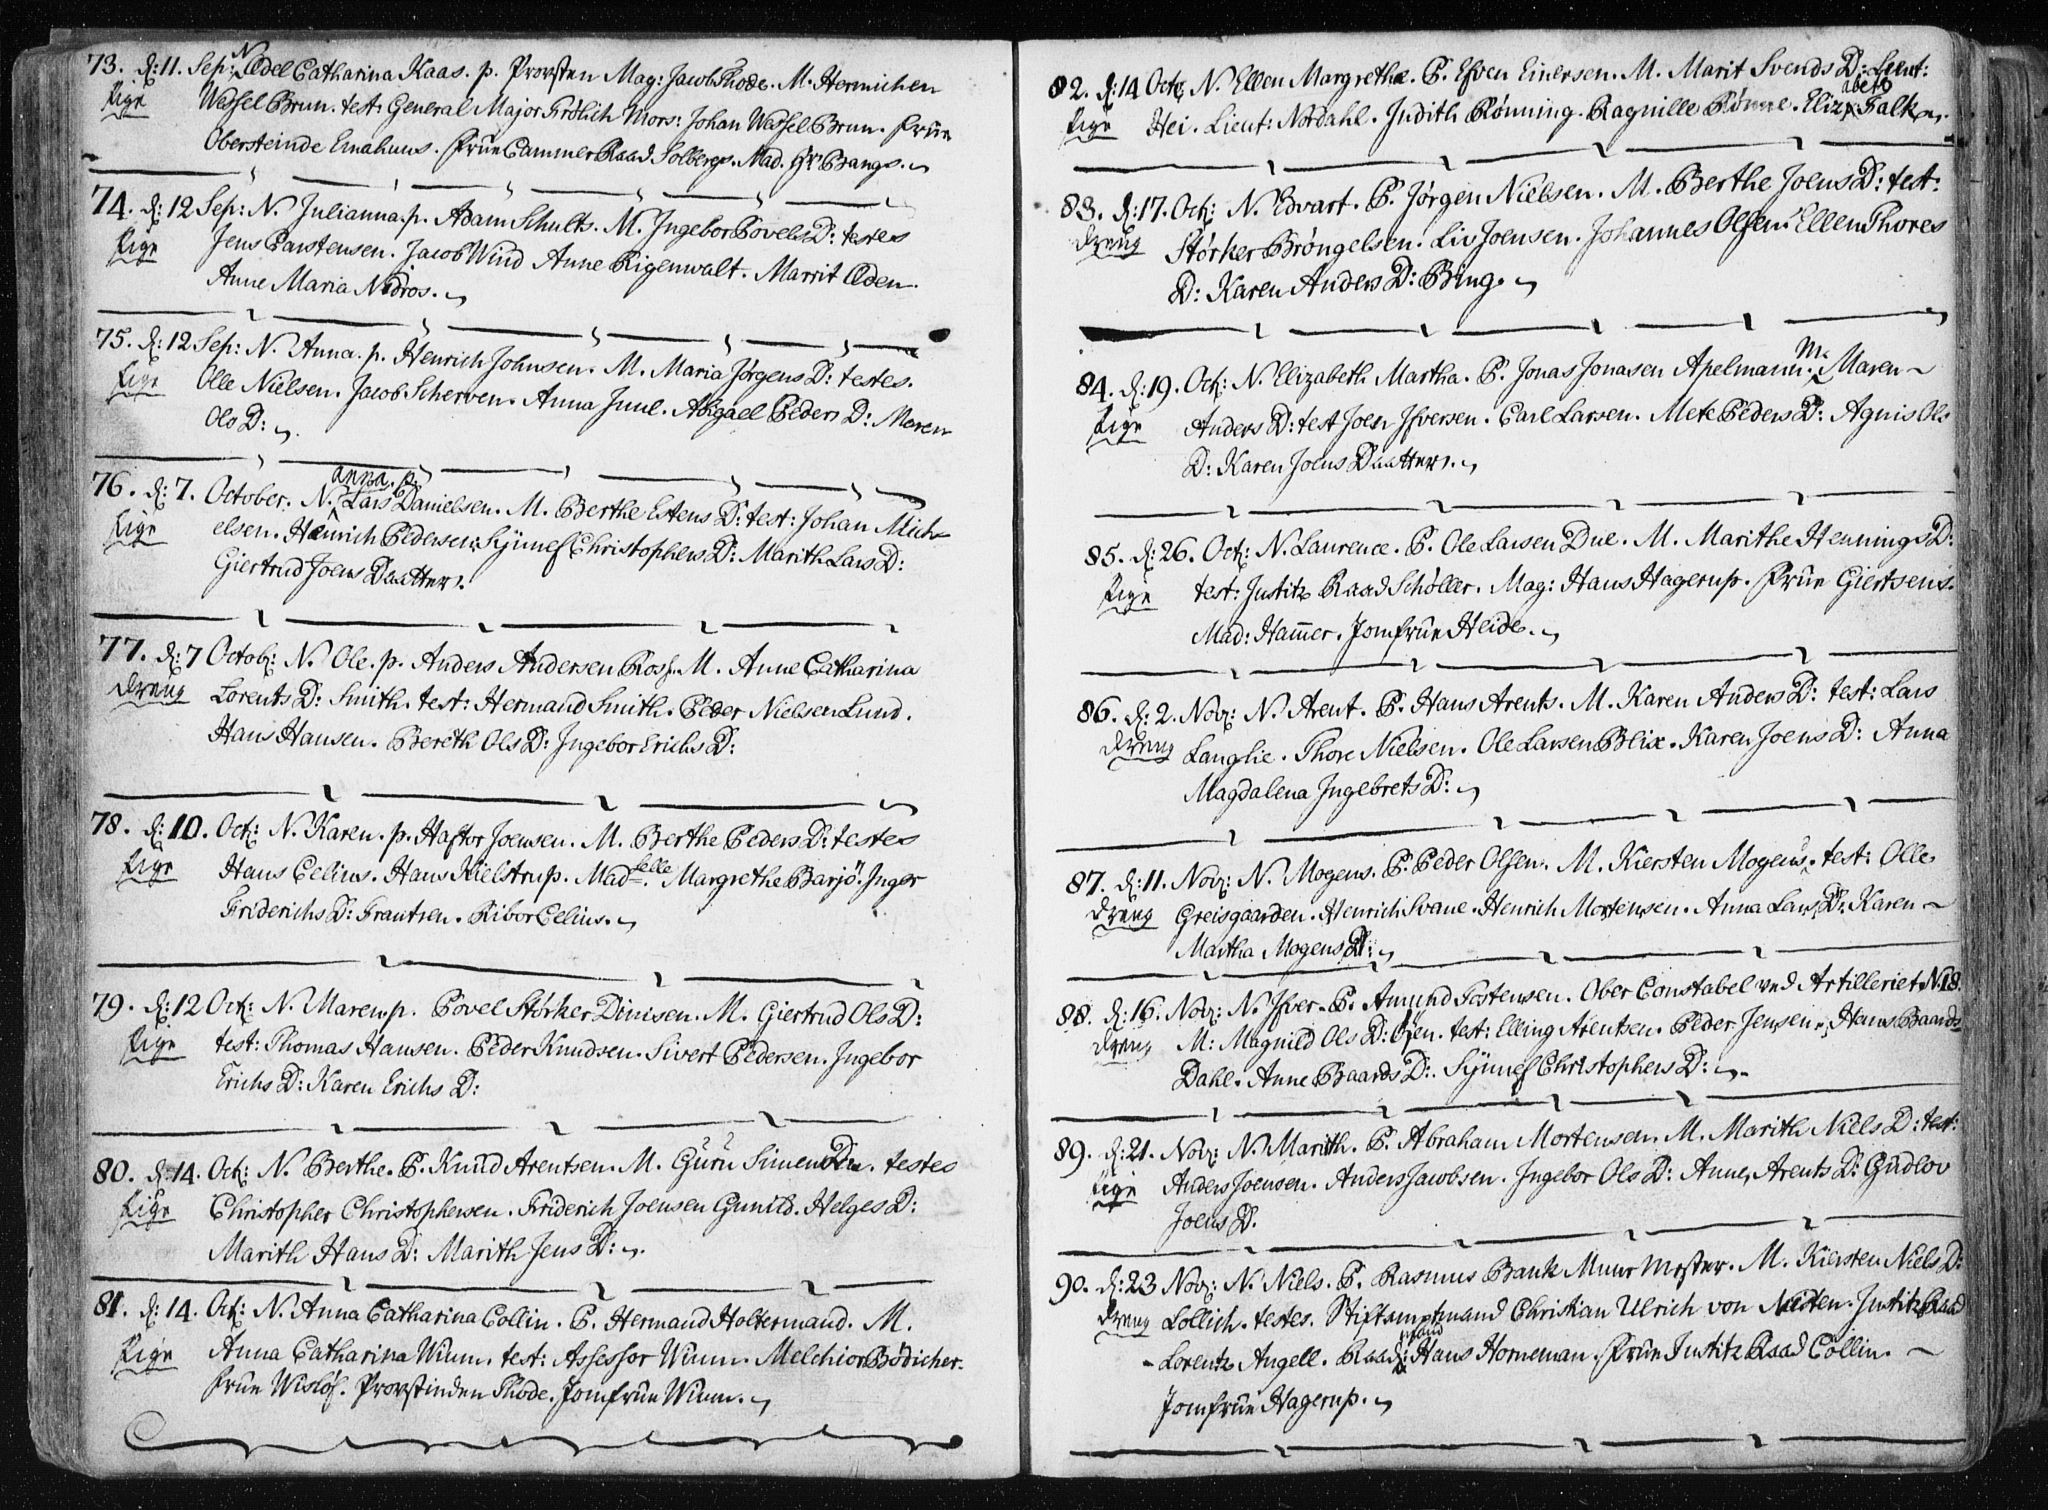 73. d: 11. Sep: N. Ædel Catharina Kaas. p. Provsten Mag: Jacob Thode. M. Hermichen
Pige Wessel Brun. test: General Major Frölich Mors: Johan Wessel Brun. Frue
Obersteinde Emahuus. Frue Cammer Raad Solbergs. Mad. Hr Bangs.
74. d: 12 Sep: N. Julianna. p. Adam Schults. M. Ingebor Povels D: testes
Pige Jens Carstensen. Jacob Wind Anne Rigenwalt. Marrit Œden.
Anne Maria Nidros.
75. d: 12 Sep: N. Anna. p. Henrich Johnsen. M. Maria Jørgens D: testes.
Pige Olle Nielsen. Jacob Scherven. Anna Juul. Abigael Peders D: Maren
Ols D:
76. d: 7. October. N. anna. p. Lars Danielsen. M. Berthe Estens D: test: Johan Mich-
Pige elsen. Heinrich Pedersen. Sÿnnef Christophers D: Marith Lars D:
Giertrud Joens Daatter.
77. d: 7 Octob: N. Ole. p. Anders Andersen Ross. M. Anne Catharina
dreng Lorents D: Smith. test: Hermand Smith. Peder Nielsen Lund.
Hans Hansen. Bereth Ols D: Ingebor Erichs D:
78. d: 10. Oct: N. Karen. p. Haftor Joensen. M. Berthe Peders D: testes
Pige Hans Celius. Hans Kielstrup. Madselle. Margrethe Barjö. Inger
Friderichs D: Frantsen. Kibor Celius.
79. d: 12 Oct: N. Maren. p. Povel Størker Dinisen. M. Giertrud Ols D:
Pige test: Thomas Hansen. Peder Knudsen. Sivert Pedersen. Ingebor
Erichs D: Karen Erichs D:
80. d: 14. Oct: N. Berthe. P. Knud Arentsen. M. Guru Simens D. testes
Pige Christopher Christophersen. Friderich Joensen Gunild. Helges D:
Marith Hans D: Marith Jens D:
81. d: 14. Oct: N. Anna Catharina Collin. P. Hermand Holtermand. M.
Pige Anna Catharina Winn. test: Assessor Winn. Melchior Bödicher.
Frue Wislöf. Provstinden Thode. Jomfrue Winn.
82. d: 14 Oct: N. Ellen Margrethe. P. Esven Einersen. M. Marit Svends D: Lieut:
Pige Hei. Lieut: Nordahl. Judith Rønning. Ragnille Rønne. Elizabeth Falk.
83. d: 17. Oct: N. Edvart. P. Jørgen Nielsen. M. Berthe Joens D: test:
dreng Størker Brøngelsen. Liv Joensen. Johannes Olsen. Ellen Thores
D: Karen Anders D: Bing.
84. d: 19. Oct: N. Elizabeth Martha. P. Jonas Jonasen Apelmann. M: Maren
Pige Anders D: test Joen Ifversen. Carl Larsen. Mete Peders D: Agnis Ols
D: Karen Joens Daatter.
85. d: 26. Oct: N. Laurence. P. Ole Larsen Due. M. Marithe Hennings D:
Pige test: Justitz Raad Schøller. Mag: Hans Hagerup. Frue Giertsens.
Mad: Hammer. Jomfrue Heide.
86. d: 2. Nov: N. Arent. P. Hans Arents. M. Karen Anders D: test: Lars
dreng Langlie. Thore Nielsen. Ole Larsen Blix. Karen Joens D: Anna
Magdalena Ingebrets D:
87. d: 11. Nov: N. Mogens. P. Peder Olsen. M. Kiersten Mogens. test: Olle
dreng Greisgaarden. Henrich Svane. Henrich Mortensen. Anna Lars D: Karen
Martha Mogens D:
88. d: 16. Nov: N. Ifver. P. Amund Tostensen. Ober Constabel ved Artilleriet N. 18.
dreng M: Magnild Ols D: test: Elling Arentsen. Peder Jensen. Hans Baards
Dahl. Anne Baards D: Sÿnnef Christophers D:
89. d: 21. Nov: N. Marith. P. Abraham Mortensen. M. Marith Niels D: test:
Pige Anders Joensen. Anders Jacobsen. Ingebor Ols D: Anne Arents D: Gudlov
Joens D.
90. d: 23 Nov: N. Niels. P. Rasmus Bank Muur Mester. M. Kiersten Niels D:
dreng Lollich. testes. Stiftamptmand Christian Ulrich von Justitz Raad
Lorentz Angell. Raadmand: Hans Horneman. Frue Justitz Raad Collin.
Jomfrue Hagerup.